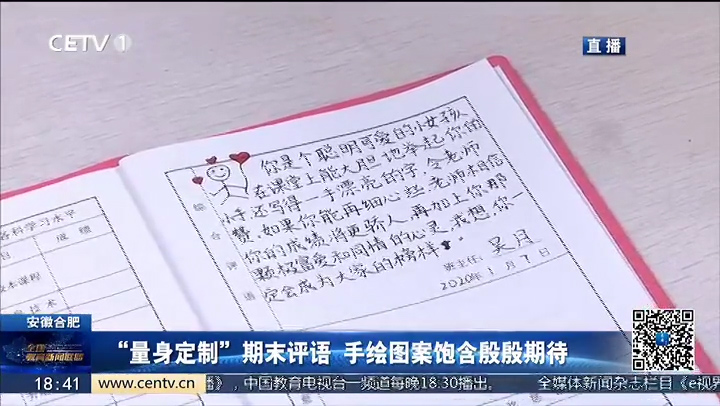 CETV 1
直播
你是个聪明可爱的小女孩
在课堂上能大胆地举起你的
小手还写得一手漂亮的字,令老师
赞.如果你能再细心些,老师相信
你的成绩将更骄人.再加上你那
颗
富爱和同情的心灵,我想,你一
定会成为大家的榜样
班主任: 吴月
2020年 1月 7日
综合评语
各科学习水平
成绩
安徽合肥
全国教育新闻联播
“量身定制”期末评语 手绘图案饱含殷殷期待
18:41
www.centv.cn
播》,中国教育电视台一频道每晚18:30播出。
全媒体新闻杂志栏目《e视界